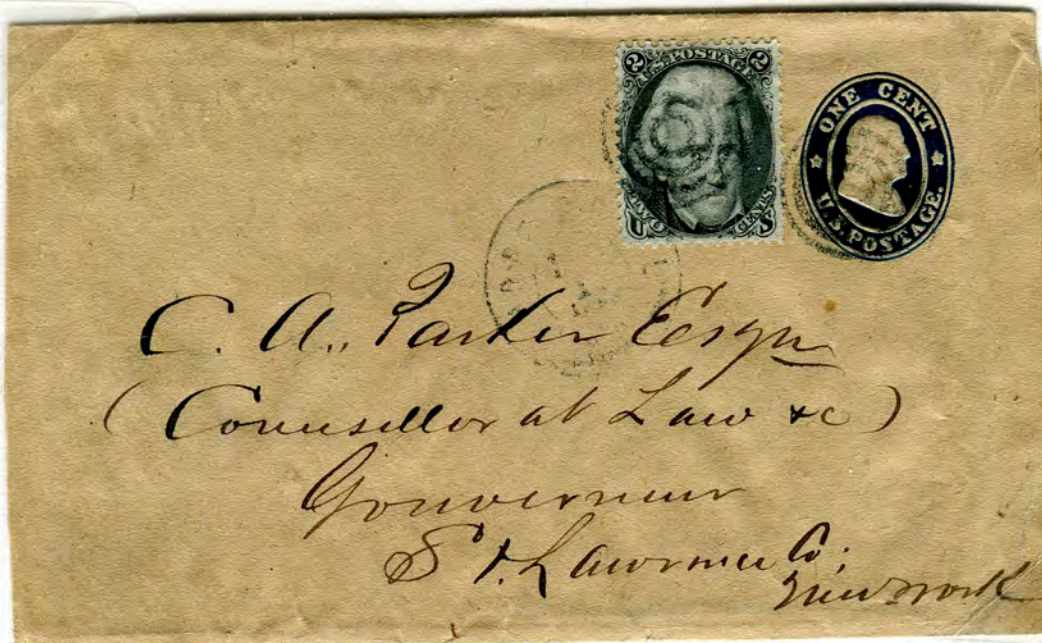 2 U.S. POSTAGE 2
TWO CENTS
U S
ONE CENT
U.S. POSTAGE.
C. A. Parker Esqr
(Counsellor at Law &c)
Gouverneur
St. Lawrence Co.
New York